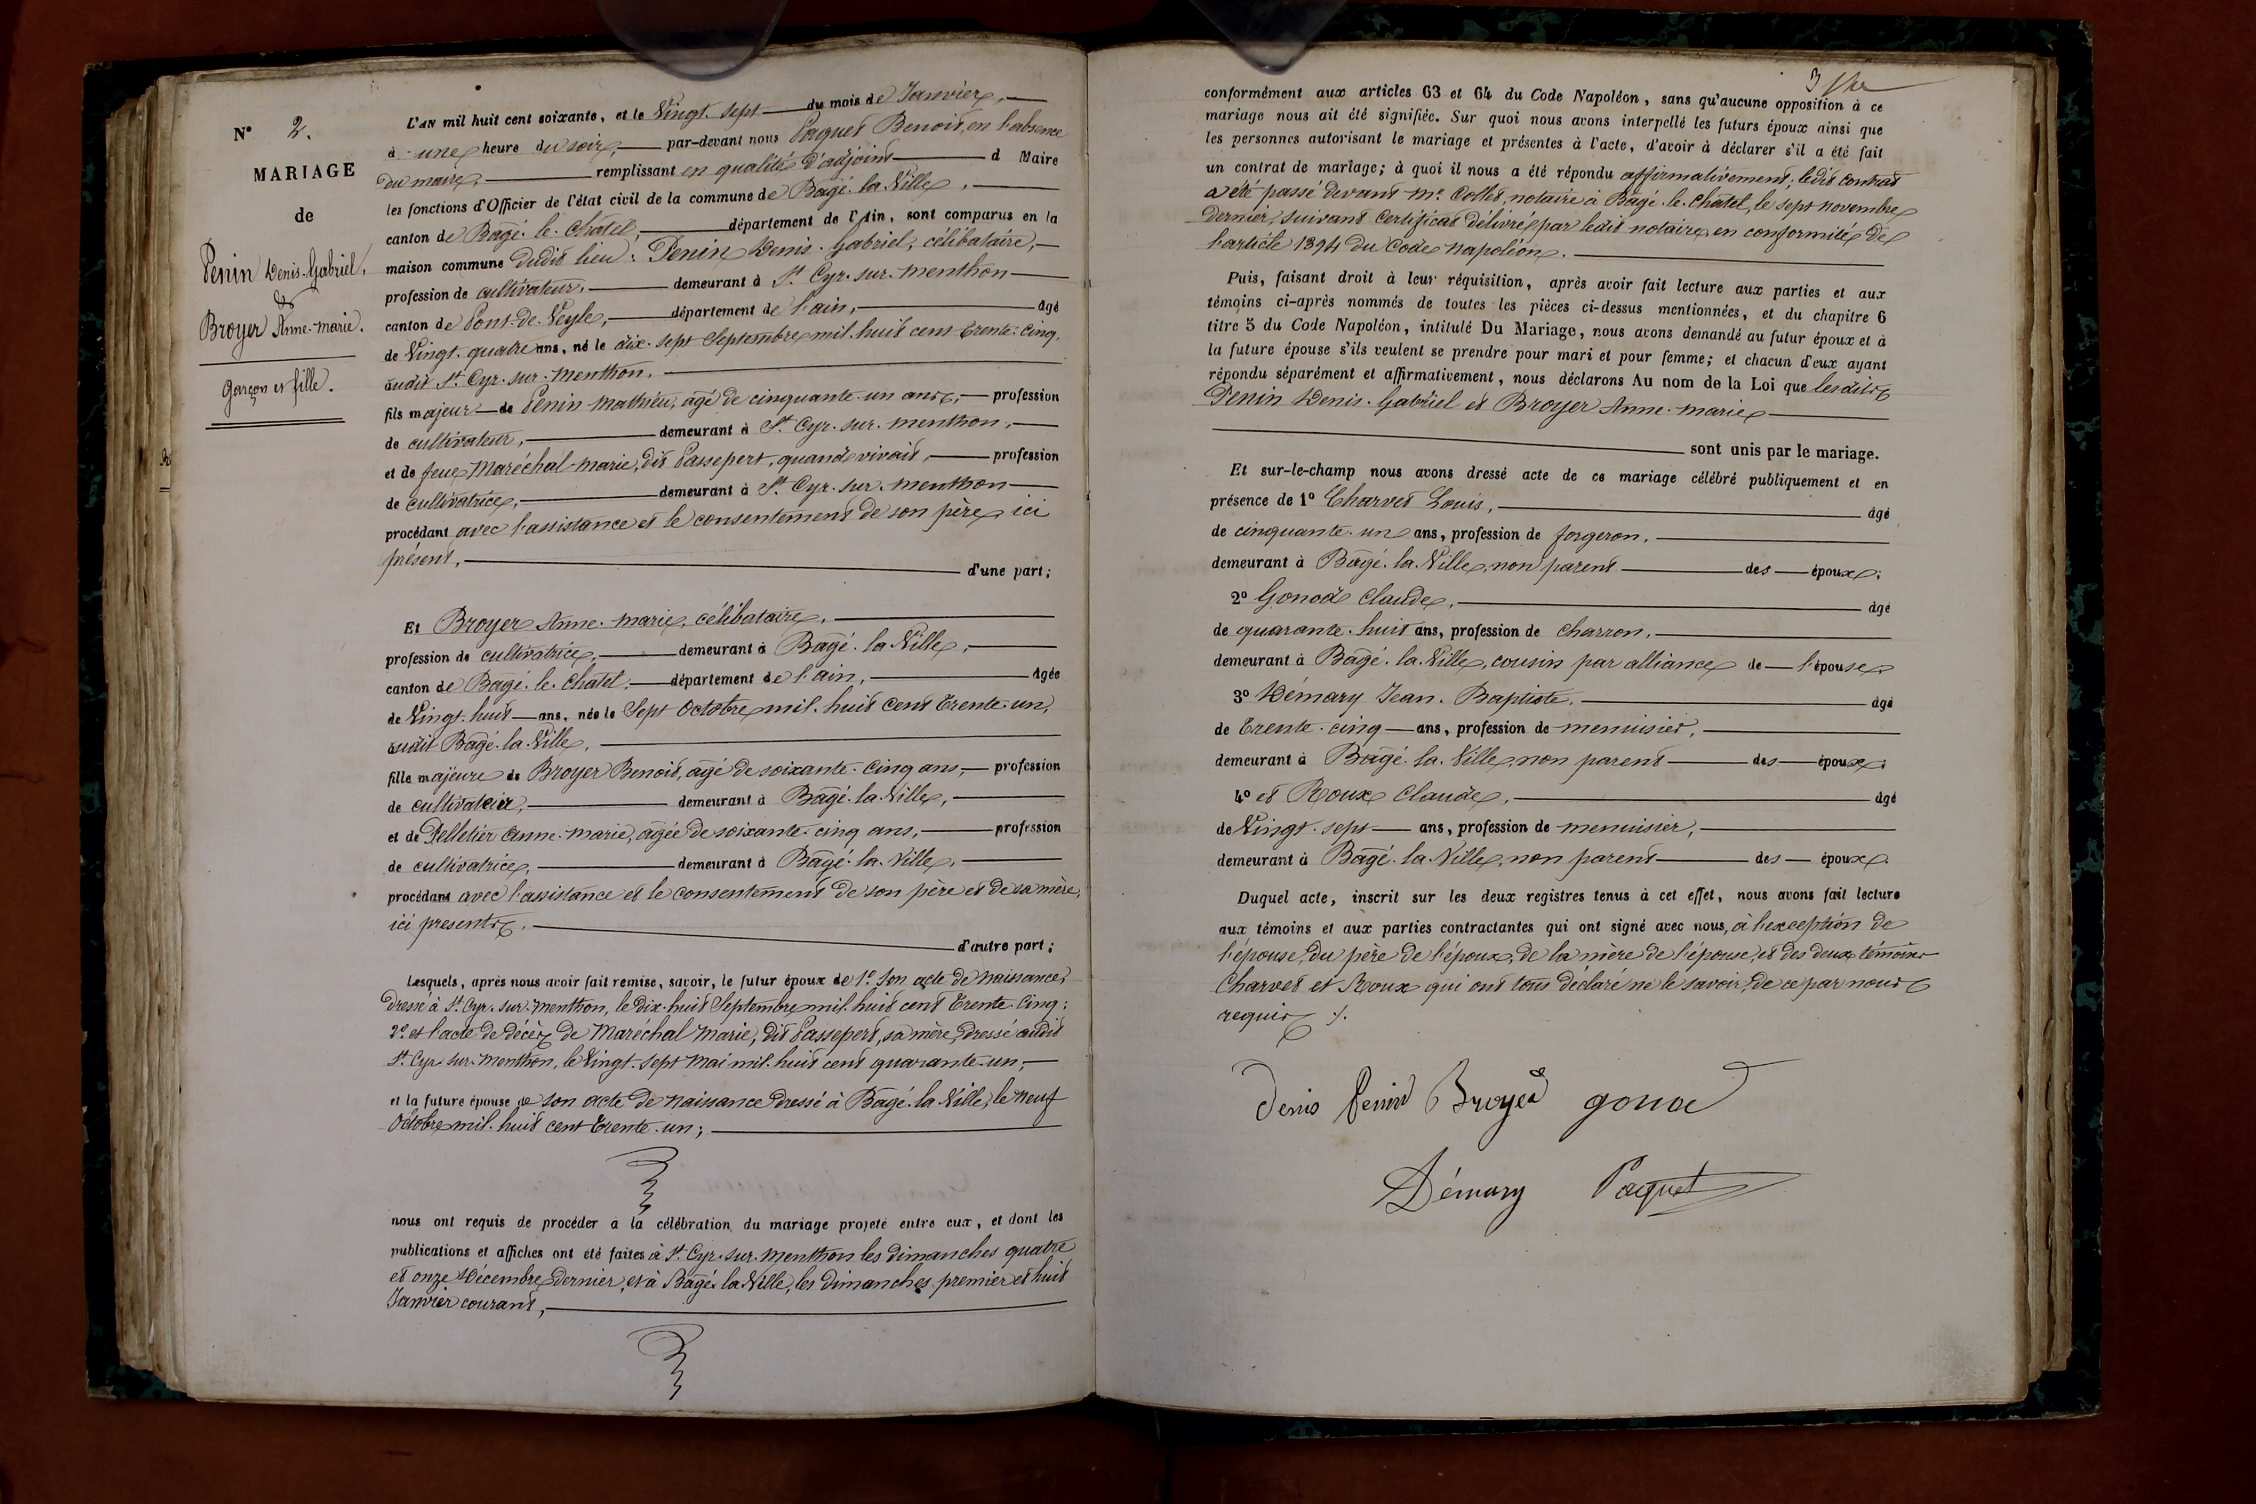 N° 2.
MARIAGE
de
Penin Denis-Gabriel,
&
Broyer Anne-marie.
Garçon et fille.
L'AN mil huit cent soixante, et le Vingt-sept du mois de Janvier,
à une heure du soir, par-devant nous Paquet Benoit, en l'absence
du maire, remplissant en qualité d'adjoint d Maire
les fonctions d'Officier de l'état civil de la commune de Bagé-la-Ville,
canton de Bagé-le-Châtel, département de l'Ain, sont comparus en la
maison commune dudit lieu: Penin Denis-Gabriel, célibataire,
profession de cultivateur, demeurant à St Cyr-sur-Menthon
canton de Pont-de-Veyle, département de l'ain, âgé
de Vingt-quatre ans, né le dix-sept Septembre mil-huit cent trente-cinq,
audit St Cyr-sur-Menthon,
fils majeur de Penin Mathieu, âgé de cinquante-un ans, profession
de cultivateur, demeurant à St Cyr-sur-Menthon,
et de feue Maréchal-marie, dit Passepert, quand vivait, profession
de cultivatrice, demeurant à St Cyr-sur-Menthon
procédant avec l'assistance et le consentement de son père ici
présent, d'une part;
Et Broyer Anne-marie, célibataire,
profession de cultivatrice, demeurant à Bagé-la-Ville,
canton de Bagé-le-Châtel, département de l'ain, âgée
de Vingt-huit ans, née le Sept Octobre mil-huit cent trente-un,
audit Bagé-la-Ville,
fille majeure de Broyer Benoit, âgé de soixante-cinq ans, profession
de cultivateur, demeurant à Bagé-la-Ville,
et de Pelletier Anne-marie, âgée de soixante-cinq ans, profession
de cultivatrice, demeurant à Bagé-la-Ville,
procédant avec l'assistance et le consentement de son père et de sa mère,
ici presents, d'autre part;
Lesquels, après nous avoir fait remise, savoir, le futur époux de 1° son acte de Naissance,
dressé à St Cyr-sur-Menthon, le dix-huit Septembre mil-huit cent trente-cinq;
2° et l'acte de décès de Maréchal Marie, dit Passepert, sa mère, dressé audit
St Cyr-sur-Menthon, le Vingt-sept Mai mil-huit cent quarante-un,
et la future épouse de son acte de naissance dressé à Bagé-la-Ville, le neuf
Octobre mil-huit cent trente-un;
nous ont requis de procéder à la célébration du mariage projeté entre eux, et dont les
publications et affiches ont été faites à St Cyr-sur-Menthon les dimanches quatre
et onze Décembre dernier, et à Bagé-la-Ville, les dimanches premier et huit
Janvier courant,
3
conformément aux articles 63 et 64 du Code Napoléon, sans qu'aucune opposition à ce
mariage nous ait été signifiée. Sur quoi nous avons interpellé les futurs époux ainsi que
les personnes autorisant le mariage et présentes à l'acte, d'avoir à déclarer s'il a été fait
un contrat de mariage; à quoi il nous a été répondu affirmativement; ledit contrat
a été passé devant Me Collet, notaire à Bagé-le-Chatel, le sept novembre
dernier, suivant certificat délivré par ledit notaire en conformité de
l'article 1394 du Code Napoléon.
Puis, faisant droit à leur réquisition, après avoir fait lecture aux parties et aux
témoins ci-après nommés de toutes les pièces ci-dessus mentionnées, et du chapitre 6
titre 5 du Code Napoléon, intitulé Du Mariage, nous avons demandé au futur époux et à
la future épouse s'ils veulent se prendre pour mari et pour femme; et chacun d'eux ayant
répondu séparément et affirmativement, nous déclarons Au nom de la Loi que lesdits
Penin Denis-Gabriel et Broyer Anne-marie
sont unis par le mariage.
Et sur-le-champ nous avons dressé acte de ce mariage célébré publiquement et en
présence de 1° Charvet Louis, âgé
de cinquante-un ans, profession de forgeron,
demeurant à Bagé-la-Ville, non parent des époux;
2° Gonod Claude, âgé
de quarante-huit ans, profession de charron,
demeurant à Bagé-la-Ville, cousin par alliance de l'épouse;
3° Démary Jean-Baptiste, âgé
de trente-cinq ans, profession de menuisier,
demeurant à Bagé-la-Ville, non parent des époux;
4° et Roux Claude, âgé
de Vingt-sept ans, profession de menuisier,
demeurant à Bagé-la-Ville, non parent des époux.
Duquel acte, inscrit sur les deux registres tenus à cet effet, nous avons fait lecture
aux témoins et aux parties contractantes qui ont signé avec nous, à l'exception de
l'épouse, du père de l'époux, de la mère de l'épouse, et des deux témoins
Charvet et Roux qui ont tous déclaré ne le savoir, de ce par nous
requis ./.
denis Penin Broyer gonod
Démary Paquet